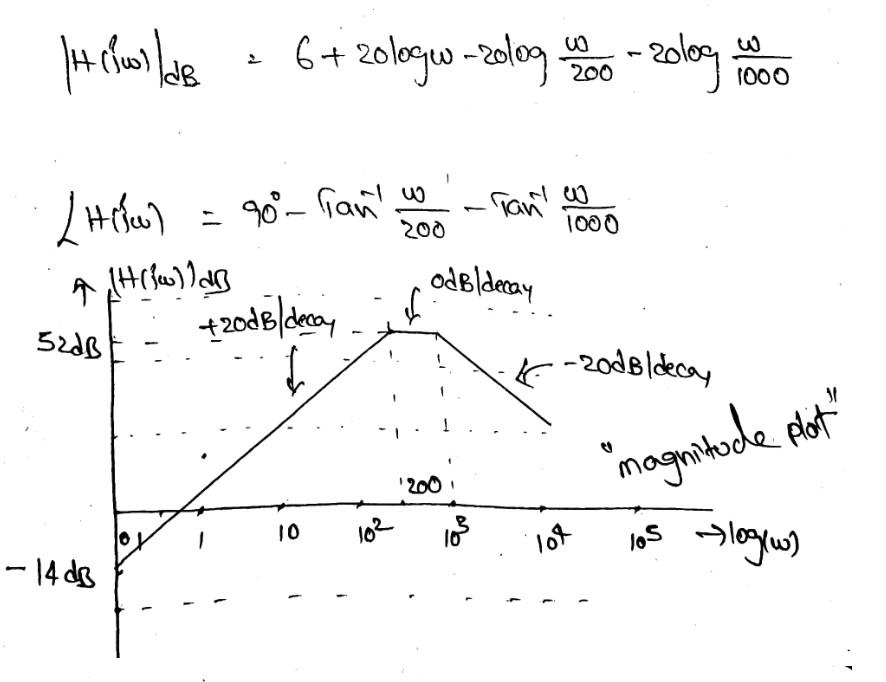 |H(jω)|dB = 6 + 20logω - 20log ω/200 - 20log ω/1000
∠H(jω) = 90° - Tan⁻¹ ω/200 - Tan⁻¹ ω/1000
|H(jω)|dB
0dB/decay
+20dB/decay
52dB
-20dB/decay
"magnitude plot"
200
0.1 1 10 10² 10³ 10⁴ 10⁵ →log(ω)
-14dB